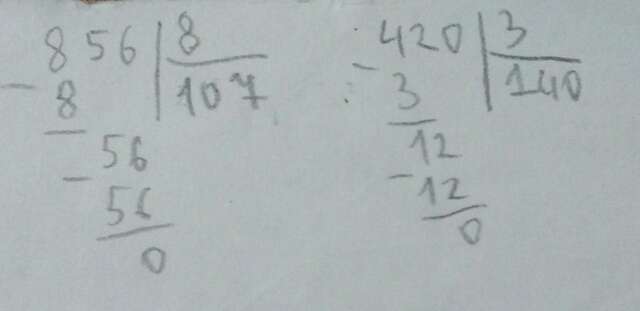 856 | 8
- 8 | 107
56
- 56
0
420 | 3
- 3 | 140
12
- 12
0